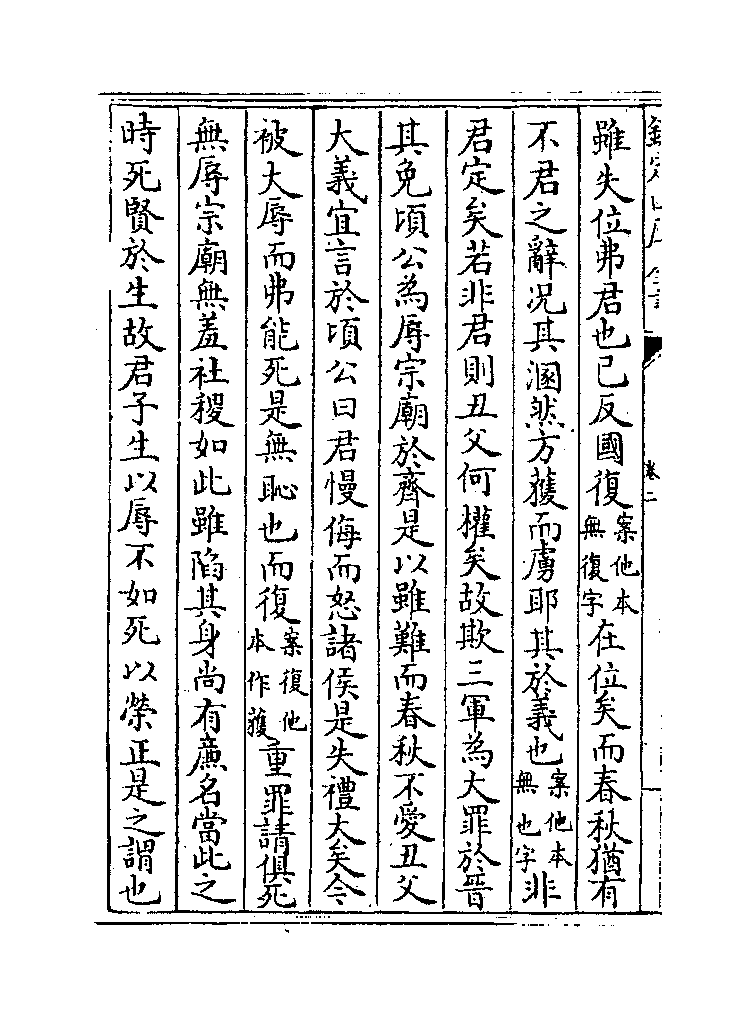 欽定四庫全書
卷二
雖失位弗君也已反國復案他本無復字在位矣而春秋猶有
不君之辭況其溷然方獲而虜耶其於義也案他本無也字非
君定矣若非君則丑父何權矣故欺三軍為大罪於晉
其免頃公為辱宗廟於齊是以雖難而春秋不愛丑父
大義宜言於頃公曰君慢侮而怒諸侯是失禮大矣今
被大辱而弗能死是無恥也而復案復他本作獲重罪請俱死
無辱宗廟無羞社稷如此雖陷其身尚有廉名當此之
時死賢於生故君子生以辱不如死以榮正是之謂也